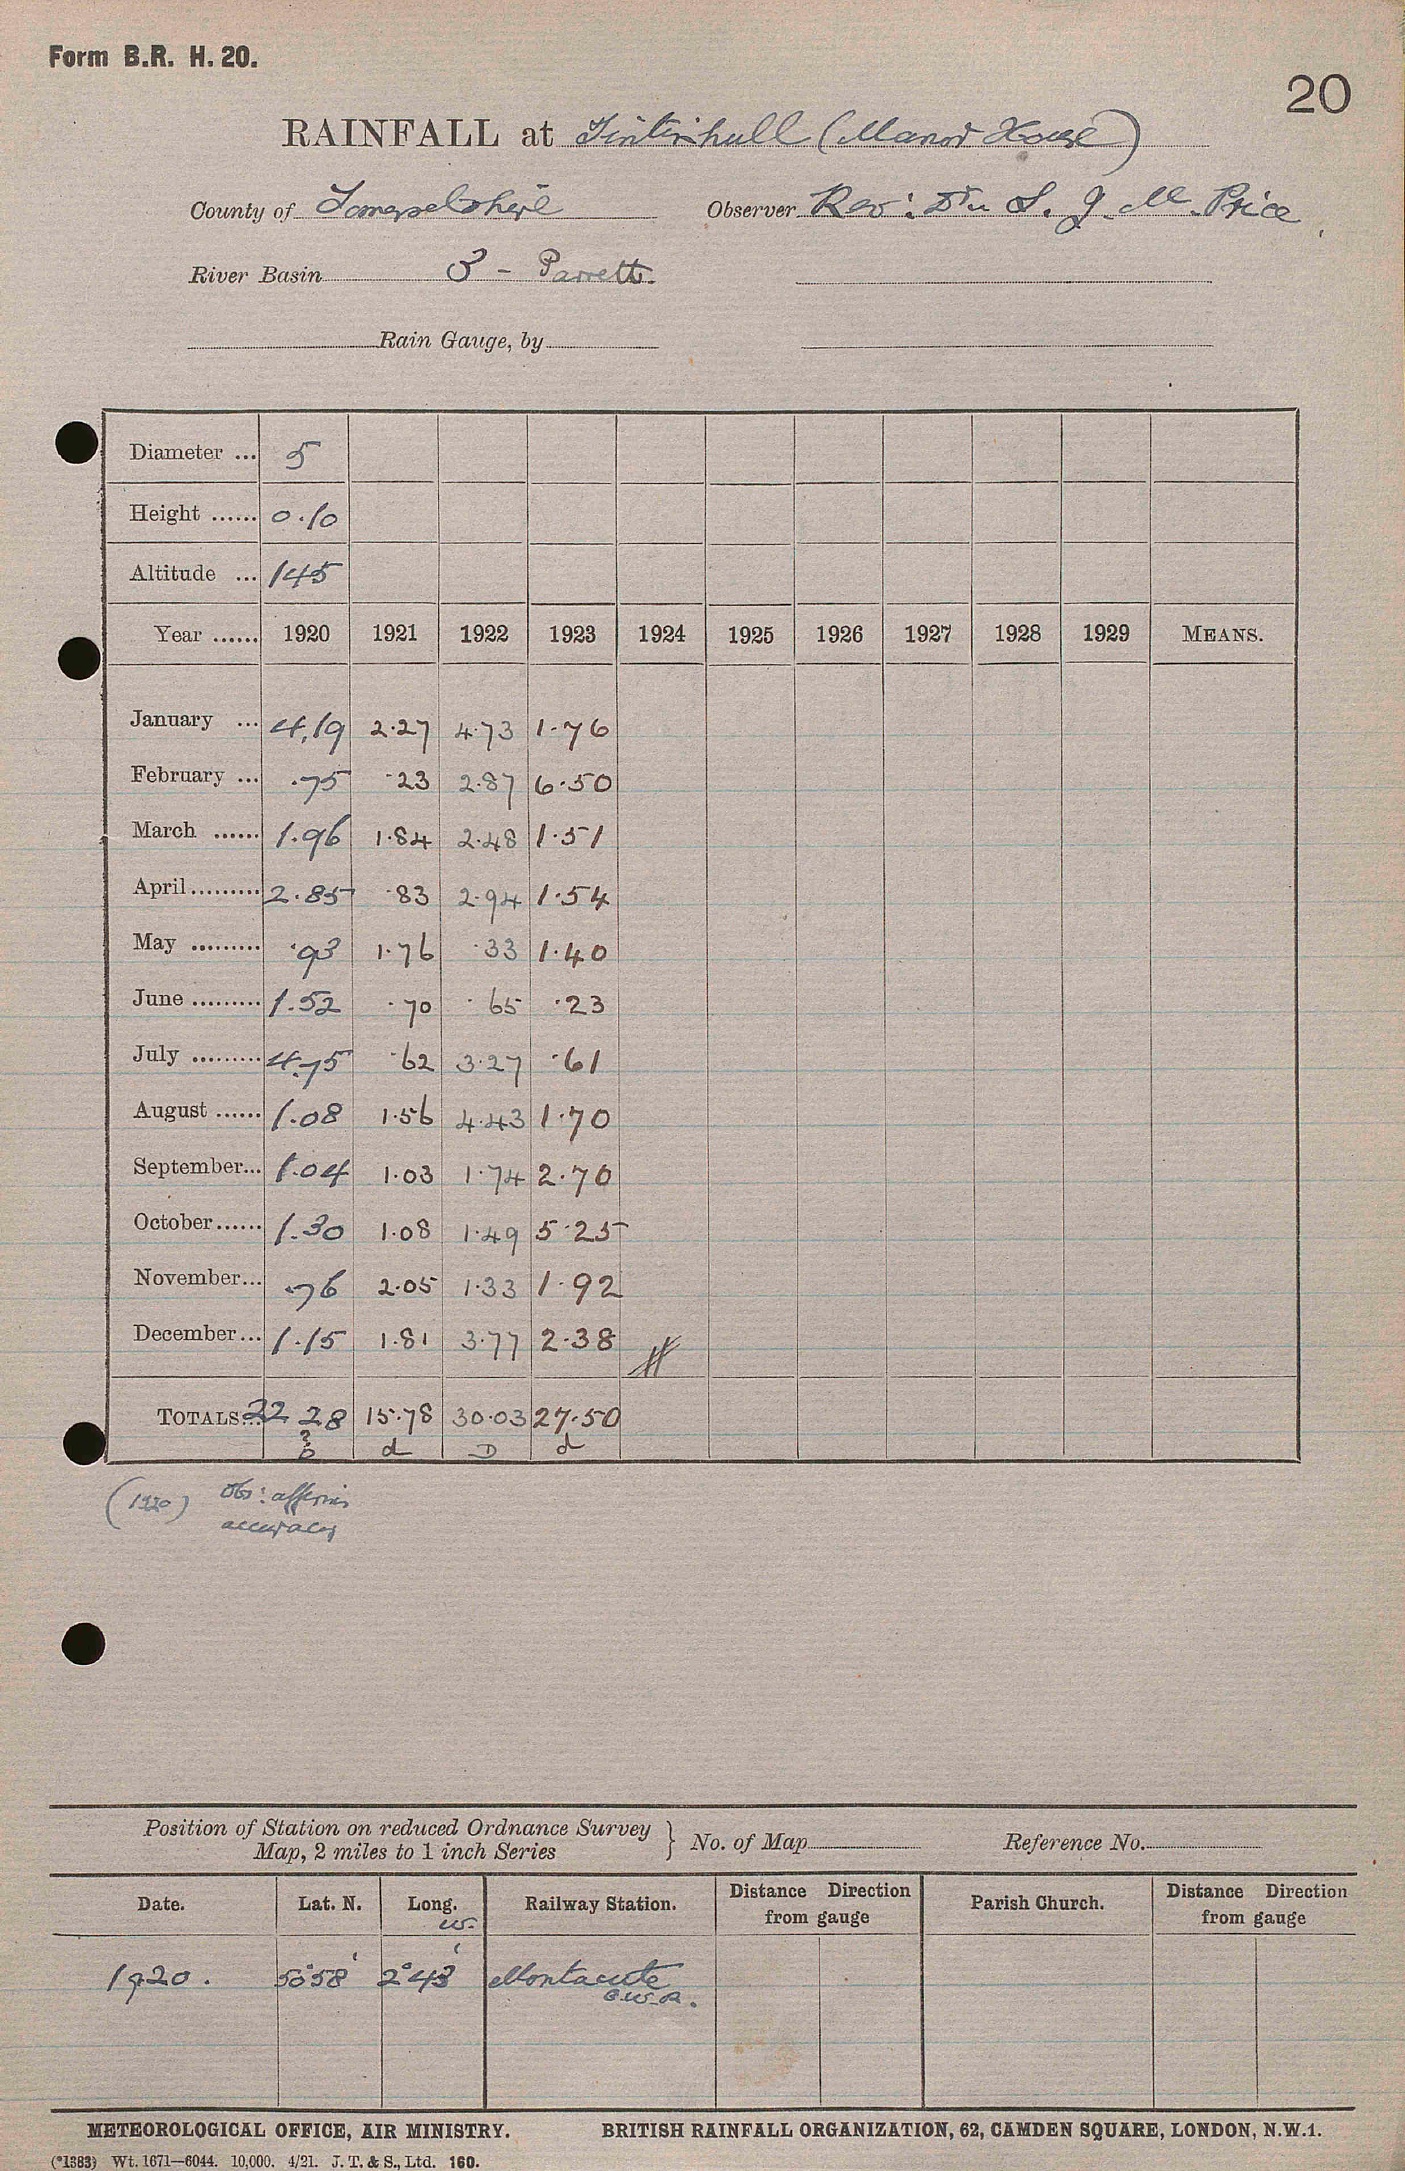 Form B.R. H. 20.
20
RAINFALL at Tintinhull (Manor House)
County of Somersetshire Observer Rev: Dr S. J. M. Price
River Basin 3 - Parrett.
Rain Gauge, by
Diameter ... 5
Height ...... 0.10
Altitude ... 145
Year ...... 1920 1921 1922 1923 1924 1925 1926 1927 1928 1929 MEANS.
January ... 4.19 2.27 4.73 1.76
February ... .75 .23 2.87 6.50
March ...... 1.96 1.84 2.48 1.51
April ......... 2.85 .83 2.94 1.54
May ......... .93 1.76 .33 1.40
June ......... 1.52 .70 .65 .23
July ......... 4.75 .62 3.27 .61
August ...... 1.08 1.56 4.43 1.70
September... 1.04 1.03 1.74 2.70
October...... 1.30 1.08 1.49 5.25
November... .76 2.05 1.33 1.92
December... 1.15 1.81 3.77 2.38
TOTALS... 22 28 15.78 30.03 27.50
? D d D d
(1920) Obs: affirms
accuracy
Position of Station on reduced Ordnance Survey
Map, 2 miles to 1 inch Series } No. of Map Reference No.
Date. Lat. N. Long. W. Railway Station. Distance Direction from gauge Parish Church. Distance Direction from gauge
1920. 50°58' 2°43' Montacute
G.W.R.
METEOROLOGICAL OFFICE, AIR MINISTRY. BRITISH RAINFALL ORGANIZATION, 62, CAMDEN SQUARE, LONDON, N.W.1.
(*1383) Wt. 1671—6044. 10,000. 4/21. J. T. & S., Ltd. 160.